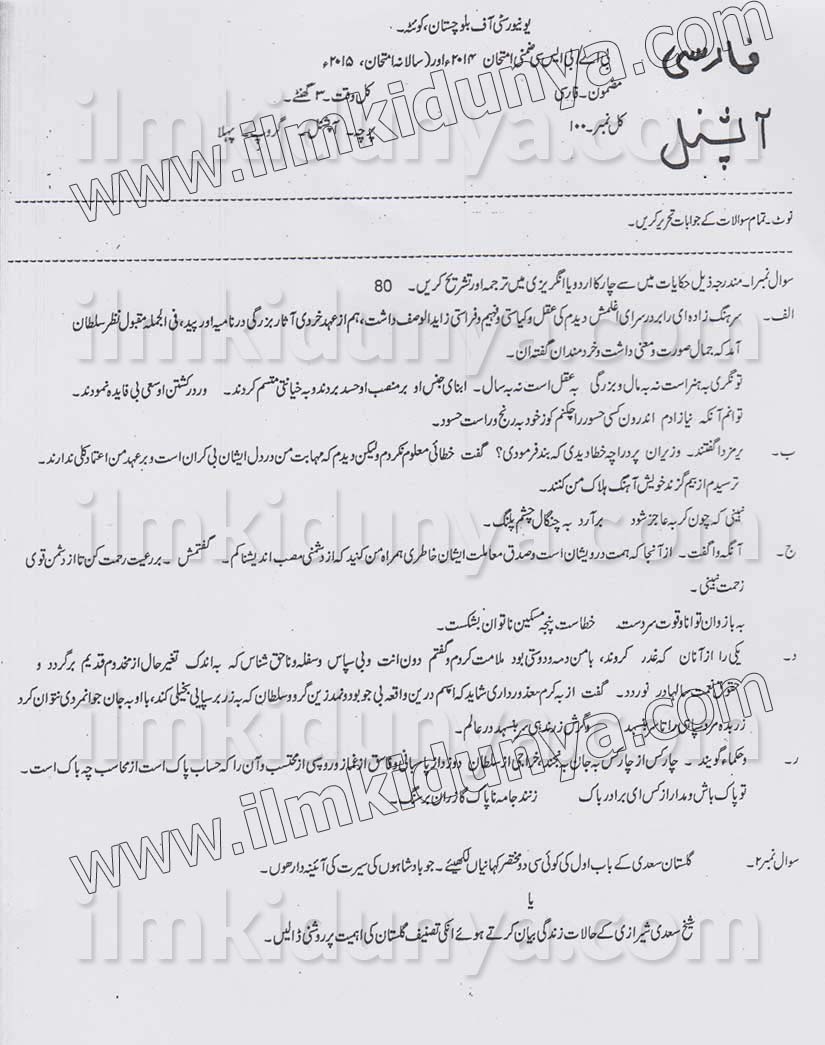 یونیورسٹی آف بلوچستان، کوئٹہ۔
بی اے/بی ایس سی ضمنی امتحان ۲۰۱۴ء اور (سالانہ امتحان، ۲۰۱۵ء
فارسی
مضمون۔ فارسی کل وقت۔ ۳ گھنٹے۔
کل نمبر۔ ۱۰۰ پرچہ۔ آپشنل۔ گروپ۔ پہلا
آپشنل
نوٹ۔ تمام سوالات کے جوابات تحریر کریں۔
سوال نمبر۱۔ مندرجہ ذیل حکایات میں سے چار کا اردو یا انگریزی میں ترجمہ اور تشریح کریں۔ 80
الف۔ سرہنگ زادہ ای را بر در سرای اغلمش دیدم کی عقل و کیاستی و فہیم و فراستی زاید الوصف داشت، ہم از عہد خردی آثار بزرگی در ناصیہ او پدید، فی الجملہ مقبول نظر سلطان
آمد کہ جمال صورت و معنی داشت و خردمندان گفتہ ان۔
تونگری بہ ہنر است نہ بہ مال و بزرگی بہ عقل است نہ بہ سال۔ ابنای جنس او بر منصب او حسد بردند و بہ خیانتی متہم کردند۔ و در کشتن او سعی بی فایدہ نمودند۔
توانم آنکہ نیازارم اندرون کسی حسود را چکنم کو زخود بہ رنج و راست حسود۔
ب۔ ہرمز را گفتند۔ وزیران پدر را چہ خطا دیدی کہ بند فرمودی؟ گفت خطائی معلوم نکردم و لیکن دیدم کہ مہابت من در دل ایشان بی کران است و بر عہد من اعتماد کلی ندارند۔
ترسیدم از بیم گزند خویش آہنگ ہلاک من کنند۔
نبینی کہ چون گربہ عاجز شود برآرد بہ چنگال چشم پلنگ۔
ج۔ آنگہ و اگفت۔ از آنجا کہ ہمت درویشان است و صدق معاملت ایشان خاطری ہمراہ من کنید کہ از دشمنی صعب اندیشناکم۔ گفتمش۔ بر رعیت رحمت کن تا از دشمن قوی
زحمت نبینی۔
بہ بازوان توانا و قوت سر دست خطاست پنجہ مسکین ناتوان بشکست۔
د۔ یکی را از آنان کہ غدر کردند، بامن دمہ دوستی بود ملامت کردم و گفتم دون است و بی سپاس و سفلہ و ناحق شناس کہ بہ اندک تغیر حال از مخدوم قدیم برگردد و
حقوق نعمت سالہا در نوردد۔ گفت از بہ کرم معذور داری شاید کہ اسپم درین واقعہ بی جو بود و نمدزین گرو و سلطان کہ بہ زر بر سپاہی بخیلی کند، با او بہ جان جوانمردی نتوان کرد
زر بدہ مرد سپاہی را تا سر بنہد و گرش زر ندہی سر بنہد در عالم۔
ر۔ و حکماء گویند۔ چار کس از چار کس بہ جان بہ نجند، خراجی از سلطان و دزد از پاسبان و فاسق از غماز و روسپی از محتسب و آن را کہ حساب پاک است از محاسب چہ باک است۔
تو پاک باش و مدار از کس ای برادر باک زنند جامہ ناپاک گازران بر سنگ۔
سوال نمبر۲۔ گلستان سعدی کے باب اول کی کوئی سی دو مختصر کہانیاں لکھیئے۔ جو بادشاہوں کی سیرت کی آئینہ دار ہوں۔
یا
شیخ سعدی شیرازی کے حالات زندگی بیان کرتے ہوئے انکی تصنیف گلستان کی اہمیت پر روشنی ڈالیں۔
www.ilmkidunya.com
www.ilmkidunya.com
ilmkidunya.com
ilmkidunya.com
ilmkidunya.com
ilmkidunya.com
ilmkidunya.com